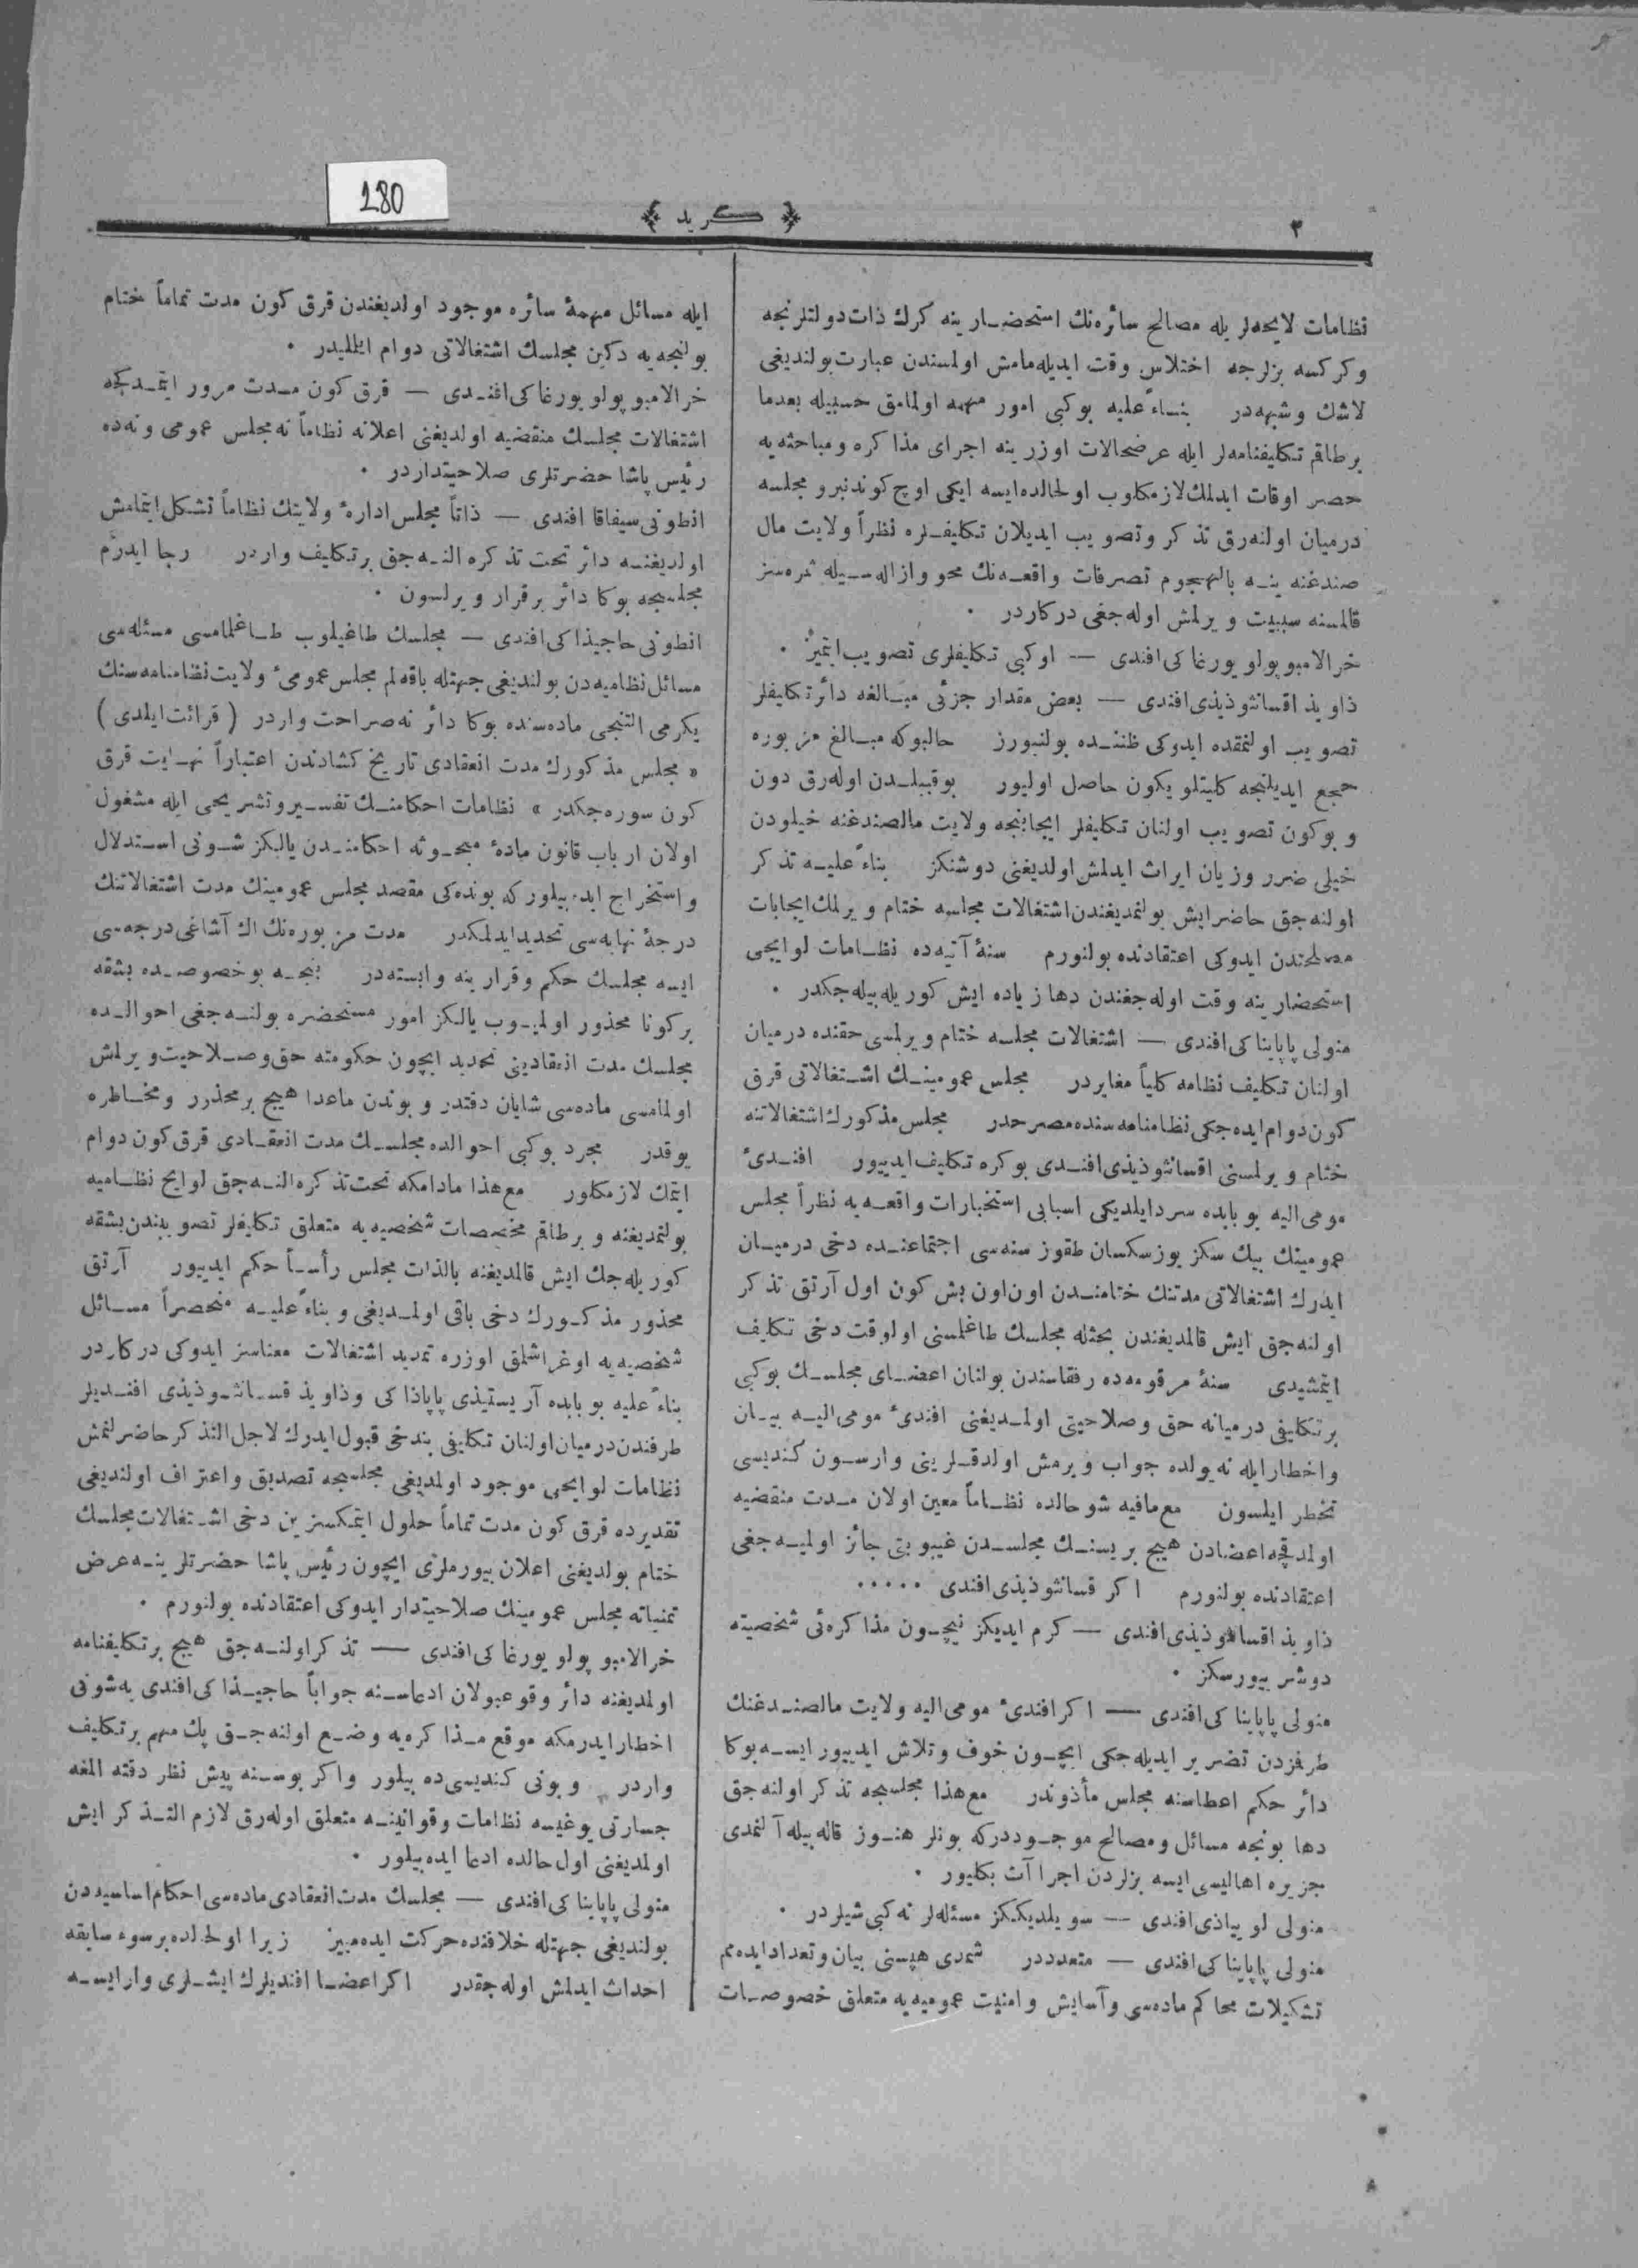 280
٣
﴿ كريد ﴾
نظامات لايحه‌لريله مصالح سائره‌نك استحضارينه كرك ذات دولتلرنجه
وكركسه بزلرجه اختلاس وقت ايديله‌مامش اولمسندن عبارت بولنديغى
لاشك وشبهه‌در بناءً عليه بوكبى امور مهمه اولمامق حسبيله بعدما
برطاقم تكليفنامه‌لر ايله عرضحالات اوزرينه اجراى مذاكره ومباحثه‌يه
حصر اوقات ايدلمك لازمكلوب اولحالده‌ايسه ايكى اوچ كوندنبرو مجلسه
درميان اولنه‌رق تذكر وتصويب ايديلان تكليفلره نظراً ولايت مال
صندغنه ينه بالهجوم تصرفات واقعه‌نك محو وازاله‌سيله ثمره‌سز
قالمسنه سببيت ويرلمش اوله‌جغى دركاردر ·
خرالامبو پولو يورغاكى افندى — اوكبى تكليفلرى تصويب ايتميز ·
ذاويذ اقسانثوذيذى افندى — بعض مقدار جزئى مبالغه دائر تكليفلر
تصويب اولنمقده ايدوكى ظننده بولنيورز حالبوكه مبالغ مزبوره
جمع ايديلنجه كليتلو يكون حاصل اوليور بوقبيلدن اوله‌رق دون
و بوكون تصويب اولنان تكليفلر ايجابنجه ولايت مالصندغنه خيلودن
خيلى ضرر وزيان ايراث ايدلمش اولديغنى دوشنكز بناءً عليه تذكر
اولنه‌جق حاضر ايش بولنمديغندن اشتغالات مجلسه ختام ويرلمك ايجابات
مصلحتدن ايدوكى اعتقادنده بولنورم سنهٔ آتيه‌ده نظامات لوايحى
استحضارينه وقت اوله‌جغندن دها زياده ايش كوريله‌بيله‌جكدر ·
منولى پاپاينا كى افندى — اشتغالات مجلسه ختام ويرلمسى حقنده درميان
اولنان تكليف نظامه كلياً مغايردر مجلس عموميـنك اشتغالاتى قرق
كون دوام ايده‌جكى نظامنامه‌سنده مصرحدر مجلس مذكورك اشتغالاتنه
ختام ويرلمسنى اقسانثوذيذى افندى بوكره تكليف ايدييور افندىٔ
مومى‌اليه بو بابده سرد ايلديكى اسبابى استخبارات واقعه‌يه نظراً مجلس
عموميـنك بيك سكز يوز سكسان طقوز سنه‌سى اجتماعنده دخى درميان
ايدرك اشتغالاتى مدتنك ختامندن اون اون بش كون اول آرتق تذكر
اولنه‌جق ايش قالمديغندن بحثله مجلسك طاغلمسنى اولوقت دخى تكليف
ايتمشيدى سنهٔ مرقومه‌ده رفقاسندن بولنان اعضاى مجلسك بوكبى
برتكليفى درميانه حق وصلاحيتى اولمديغنى افندىٔ مومى‌اليه بيان
واخطار ايله نه يولده جواب ويرمش اولدقلرينى وارسون كنديسى
تخطر ايلسون مع‌مافيه شو حالده نظاماً معين اولان مدت منقضيه
اولدقچه اعضادن هيچ بريسنك مجلسدن غيبوبتى جائز اولميه‌جغى
اعتقادنده بولنورم اكر قسانثوذيذى افندى ·····
ذاويذ اقسانثوذيذى افندى — كرم ايديكز نيچون مذاكره‌ئى شخصيته
دوشر بيورسكز ·
منولى پاپاينا كى افندى — اكر افندىٔ مومى‌اليه ولايت مالصندغنك
طرفزدن تضرير ايديله‌جكى ايچون خوف وتلاش ايدييور ايسه بوكا
دائر حكم اعطاسنه مجلس مأذوندر مع‌هذا مجلسجه تذكر اولنه‌جق
دها بونجه مسائل ومصالح موجوددركه بونلر هنوز قاله بيله آلنمدى
جزيره اهاليسى ايسه بزلردن اجراآت بكليور ·
منولى لو پياذى افندى — سويلديككز مسئله‌لر نه كبى شيلردر ·
منولى پاپاينا كى افندى — متعدددر شمدى هپسنى بيان وتعداد ايده‌مم
تشكيلات محاكم ماده‌سى وآسايش وامنيت عموميه‌يه متعلق خصوصات
ايله مسائل مهمهٔ سائره موجود اولديغندن قرق كون مدت تماماً ختام
بولنجه‌يه دكين مجلسك اشتغالاتى دوام ايتلليدر ·
خرالامبو پولو يورغاكى افندى — قرق كون مدت مرور ايتمدكجه
اشتغالات مجلسك منقضيه اولديغنى اعلانه نظاماً نه مجلس عمومى ونه‌ده
رئيس پاشا حضرتلرى صلاحيتداردر ·
انطونى سيفاقا افندى — ذاتاً مجلس ادارهٔ ولايتك نظاماً تشكل ايتمامش
اولديغنه دائر تحت تذكره النه‌جق برتكليف واردر رجا ايدرم
مجلسجه بوكا دائر برقرار ويرلسون ·
انطونى حاجيذاكى افندى — مجلسك طاغيلوب طاغلمامسى مسئله‌سى
مسائل نظاميه‌دن بولنديغى جهتله باقه‌لم مجلس عمومىٔ ولايت نظامنامه‌سنك
يكرمى التنجى ماده‌سنده بوكا دائر نه صراحت واردر ( قرائت ايلدى )
« مجلس مذكورك مدت انعقادى تاريخ كشادندن اعتباراً نهايت قرق
كون سوره‌جكدر » نظامات احكامنك تفسير وتشريحى ايله مشغول
اولان ارباب قانون مادهٔ مبحوثه احكامندن يالكز شونى استدلال
واستخراج ايده‌بيلور كه بونده‌كى مقصد مجلس عموميـنك مدت اشتغالاتنك
درجهٔ نهايه‌سى تحديد ايدلمكدر مدت مزبوره‌نك اك آشاغى درجه‌سى
ايسه مجلسك حكم وقرارينه وابسته‌در بنجه بوخصوصده بشقه
بركونا محذور اوليوب يالكز امور مستحضره بولنه‌جغى احوالده
مجلسك مدت انعقادينى تحديد ايچون حكومته حق وصلاحيت ويرلمش
اولمامسى ماده‌سى شايان دقتدر وبوندن ماعدا هيچ برمحذرر ومخاطره
يوقدر مجرد بوكبى احوالده مجلسك مدت انعقادى قرق كون دوام
ايتمك لازمكلور مع‌هذا مادامكه تحت تذكره النه‌جق لوايح نظاميه
بولنمديغنه و برطاقم مخصصات شخصيه‌يه متعلق تكليفلر تصويبندن بشقه
كوريله‌جك ايش قالمديغنه بالذات مجلس رأساً حكم ايدييور آرتق
محذور مذكورك دخى باقى اولمديغى و بناءً عليه منحصراً مسائل
شخصيه‌يه اوغراشلمق اوزره تمديد اشتغالات معناسز ايدوكى دركاردر
بناءً عليه بو بابده آريستيذى پاپاذاكى وذاويذ قسانثوذيذى افنديلر
طرفندن درميان اولنان تكليفى بندخى قبول ايدرك لاجل التذكر حاضرلنمش
نظامات لوايحى موجود اولمديغى مجلسجه تصديق واعتراف اولنديغى
تقديرده قرق كون مدت تماماً حلول ايتمكسزين دخى اشتغالات مجلسك
ختام بولديغنى اعلان بيورملرى ايچون رئيس پاشا حضرتلرينه عرض
تمنياته مجلس عموميـنك صلاحيتدار ايدوكى اعتقادنده بولنورم ·
خرالامبو پولو يورغاكى افندى — تذكر اولنه‌جق هيچ برتكليفنامه
اولمديغنه دائر وقوعبولان ادعاسنه جواباً حاجيذاكى افندى يه شونى
اخطار ايدرمكه موقع مذاكره‌يه وضع اولنه‌جق پك مهم برتكليف
واردر وبونى كنديسى‌ده بيلور واكر بوسنه پيش نظر دقته المغه
جسارتى يوغيسه نظامات وقوانينه متعلق اوله‌رق لازم التذكر ايش
اولمديغنى اول حالده ادعا ايده‌بيلور ·
منولى پاپاينا كى افندى — مجلسك مدت انعقادى ماده‌سى احكام اساسيه‌دن
بولنديغى جهتله خلافنده حركت ايده‌ميز زيرا اولحالده برسوء سابقه
احداث ايدلمش اوله‌جقدر اكر اعضا افنديلرك ايشلرى وار ايسه